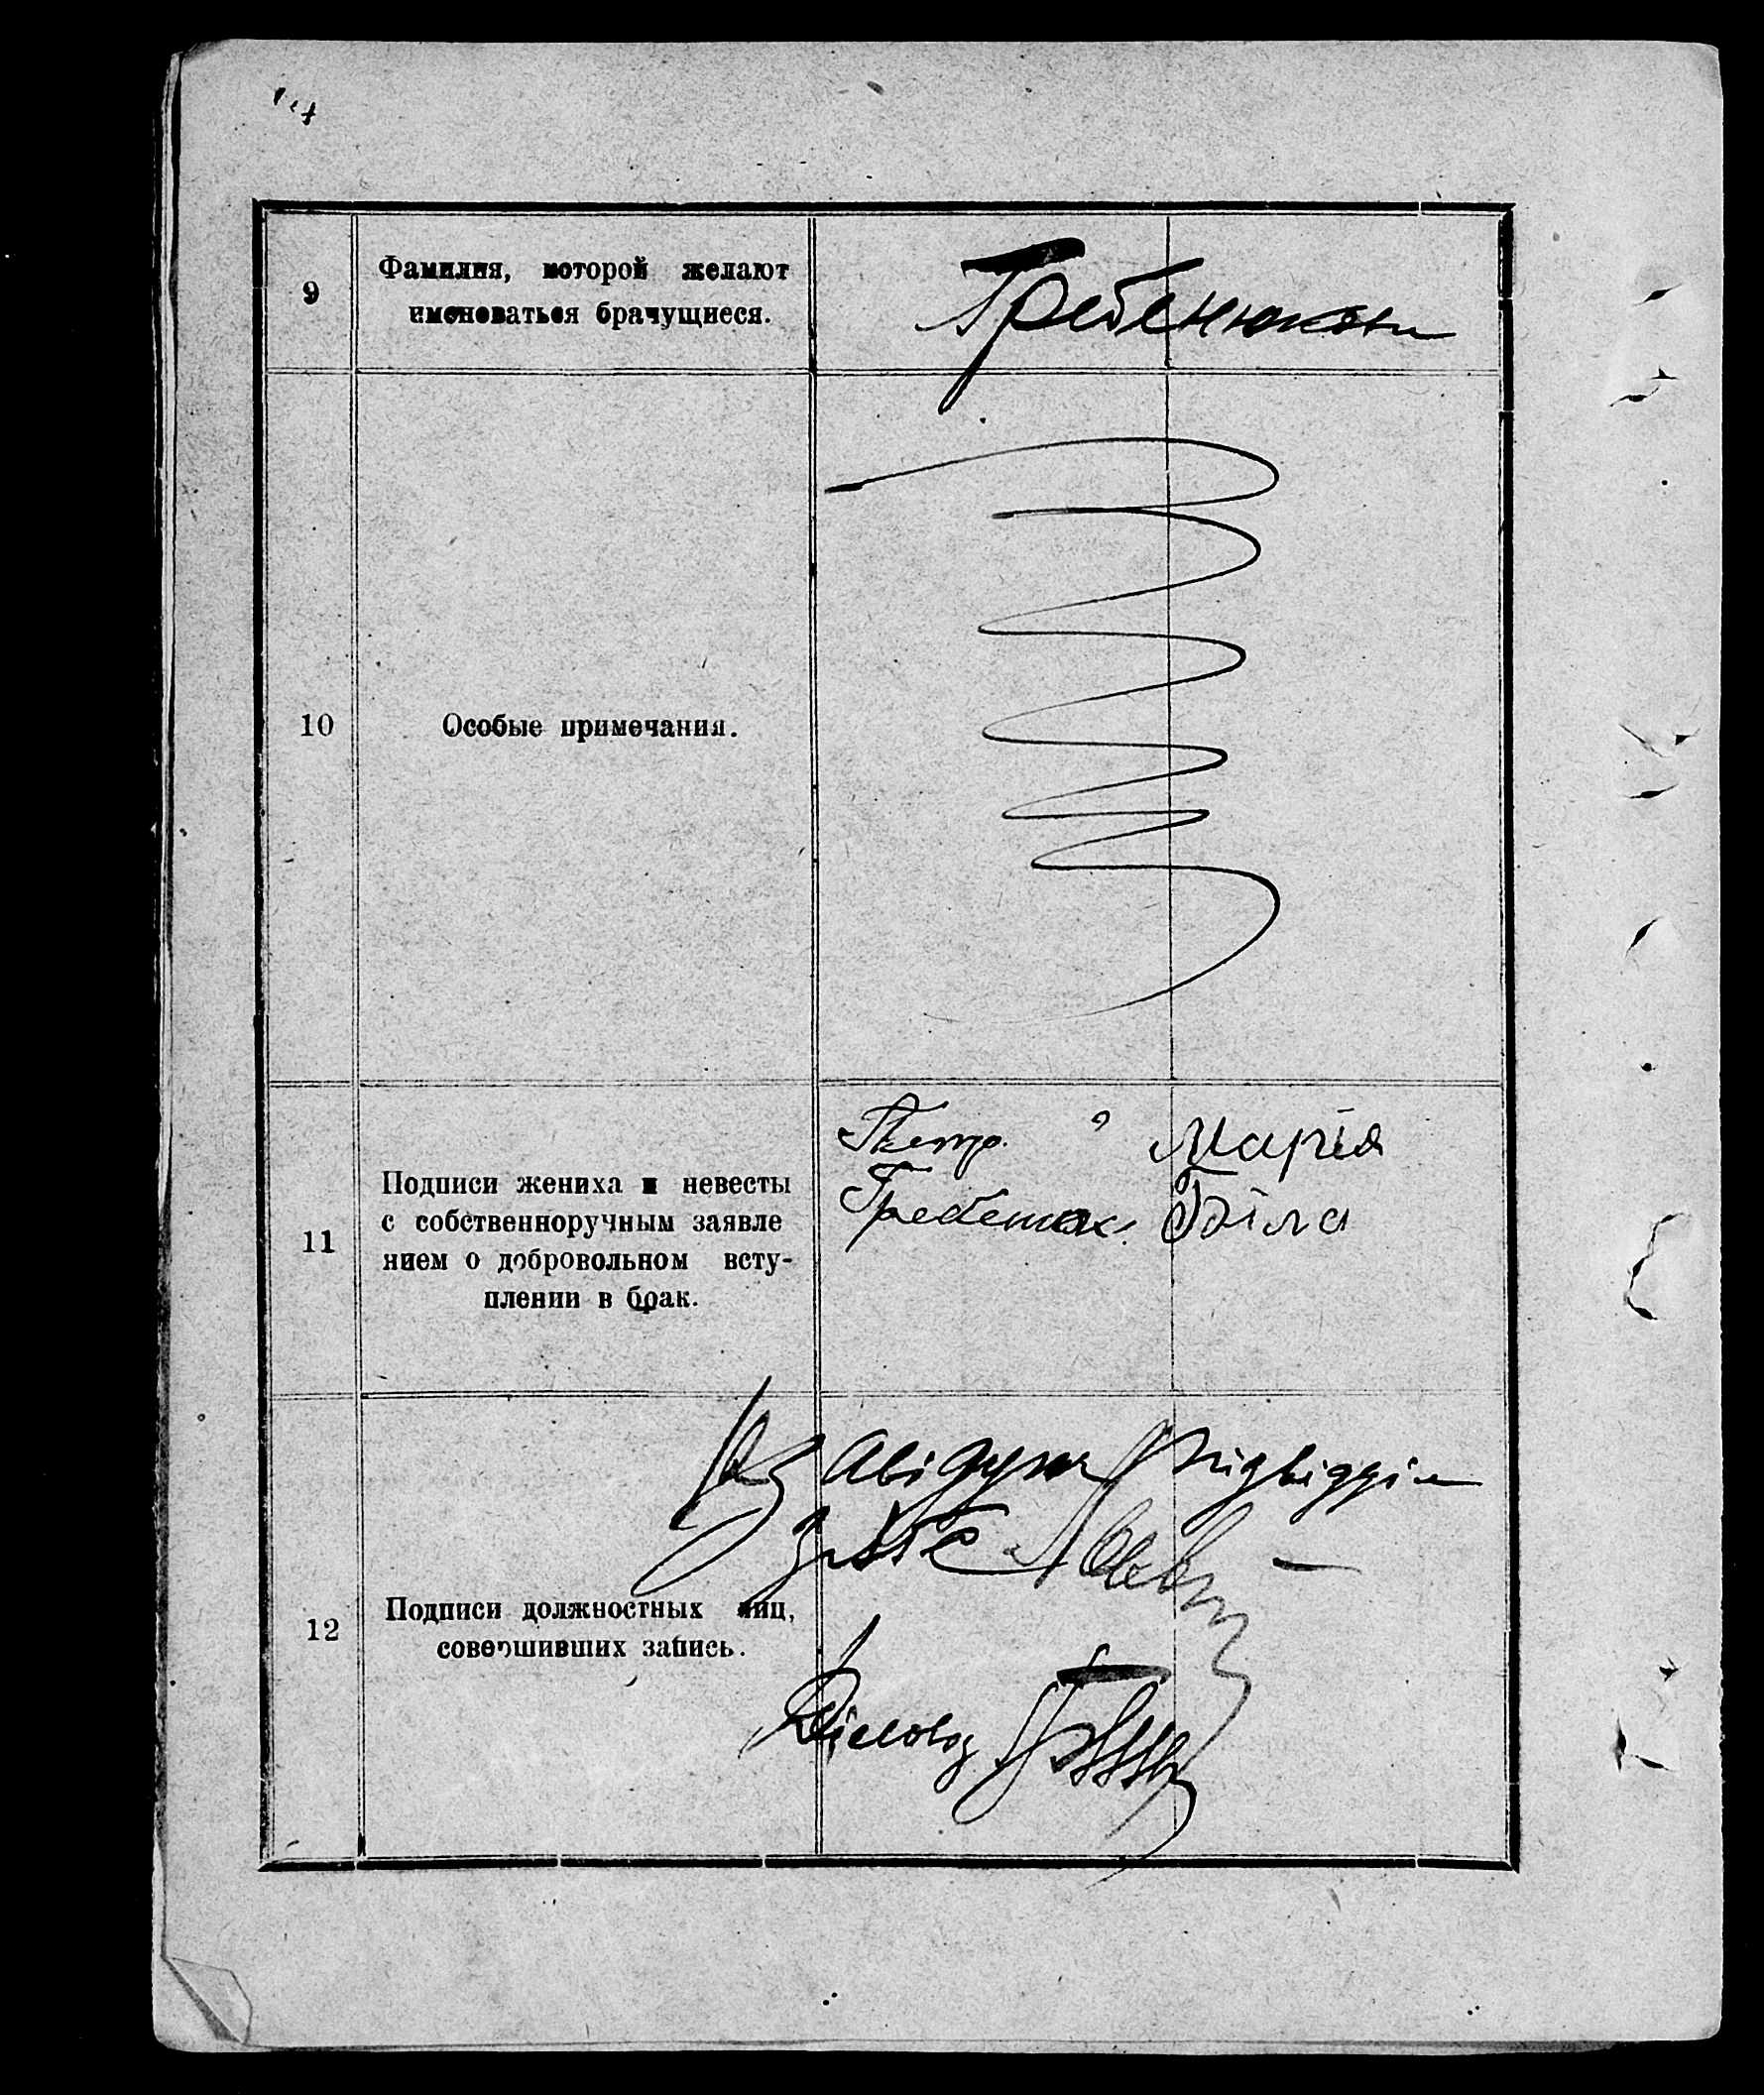 9
Фамилия, которой желают
именоваться брачущиеся.
Гребенюками
10
Особые примечания.
11
Подписи жениха и невесты
с собственноручным заявле
нием о добровольном всту-
плении в брак.
Петро
Гребенюк.
Марія
Біла
12
Подписи должностных лиц,
совершивших запись.
Завідуюч Підвідділ
ЗАГС
Діловод